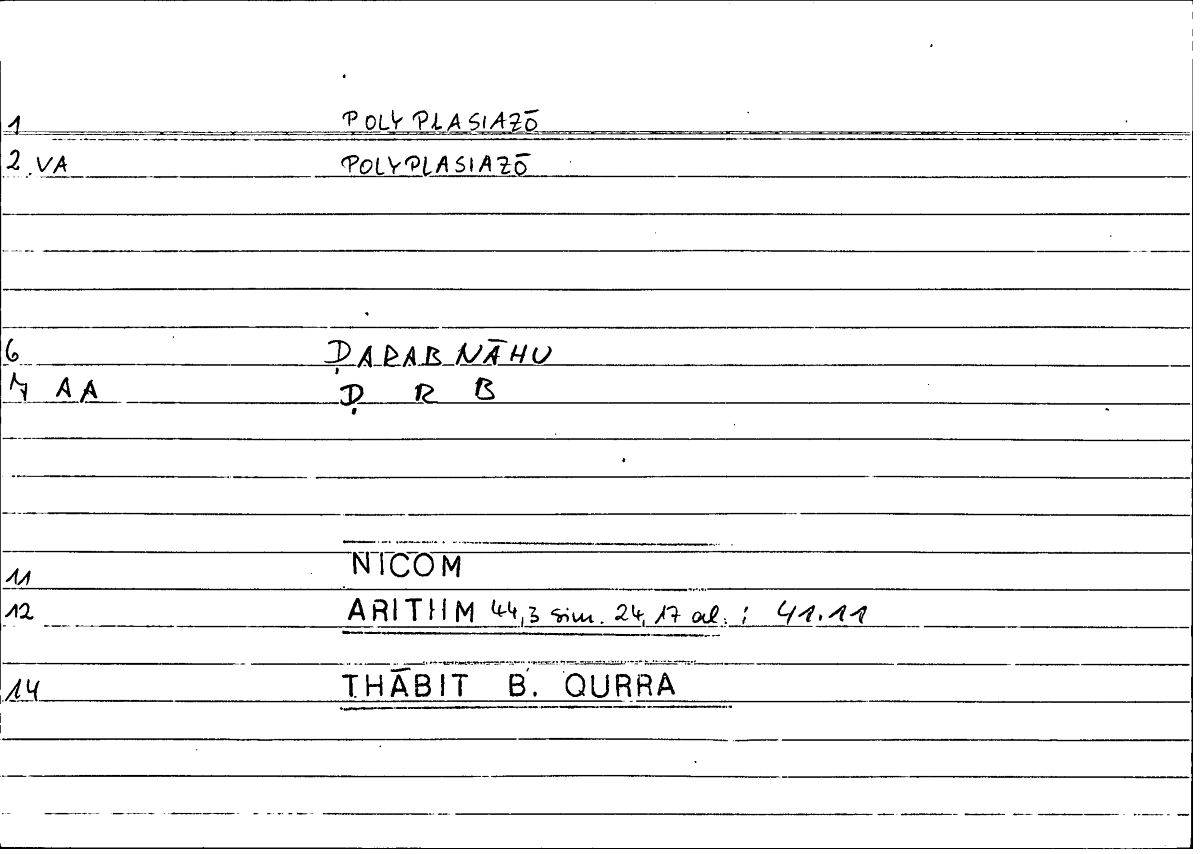 1 POLYPLASIAZŌ
2 VA POLYPLASIAZŌ
6 ḌARABNĀHU
7 AA Ḍ R B
11 NICOM
12 ARITHM 44,3 sim. 24,17 al. ; 41.11
14 THĀBIT B. QURRA